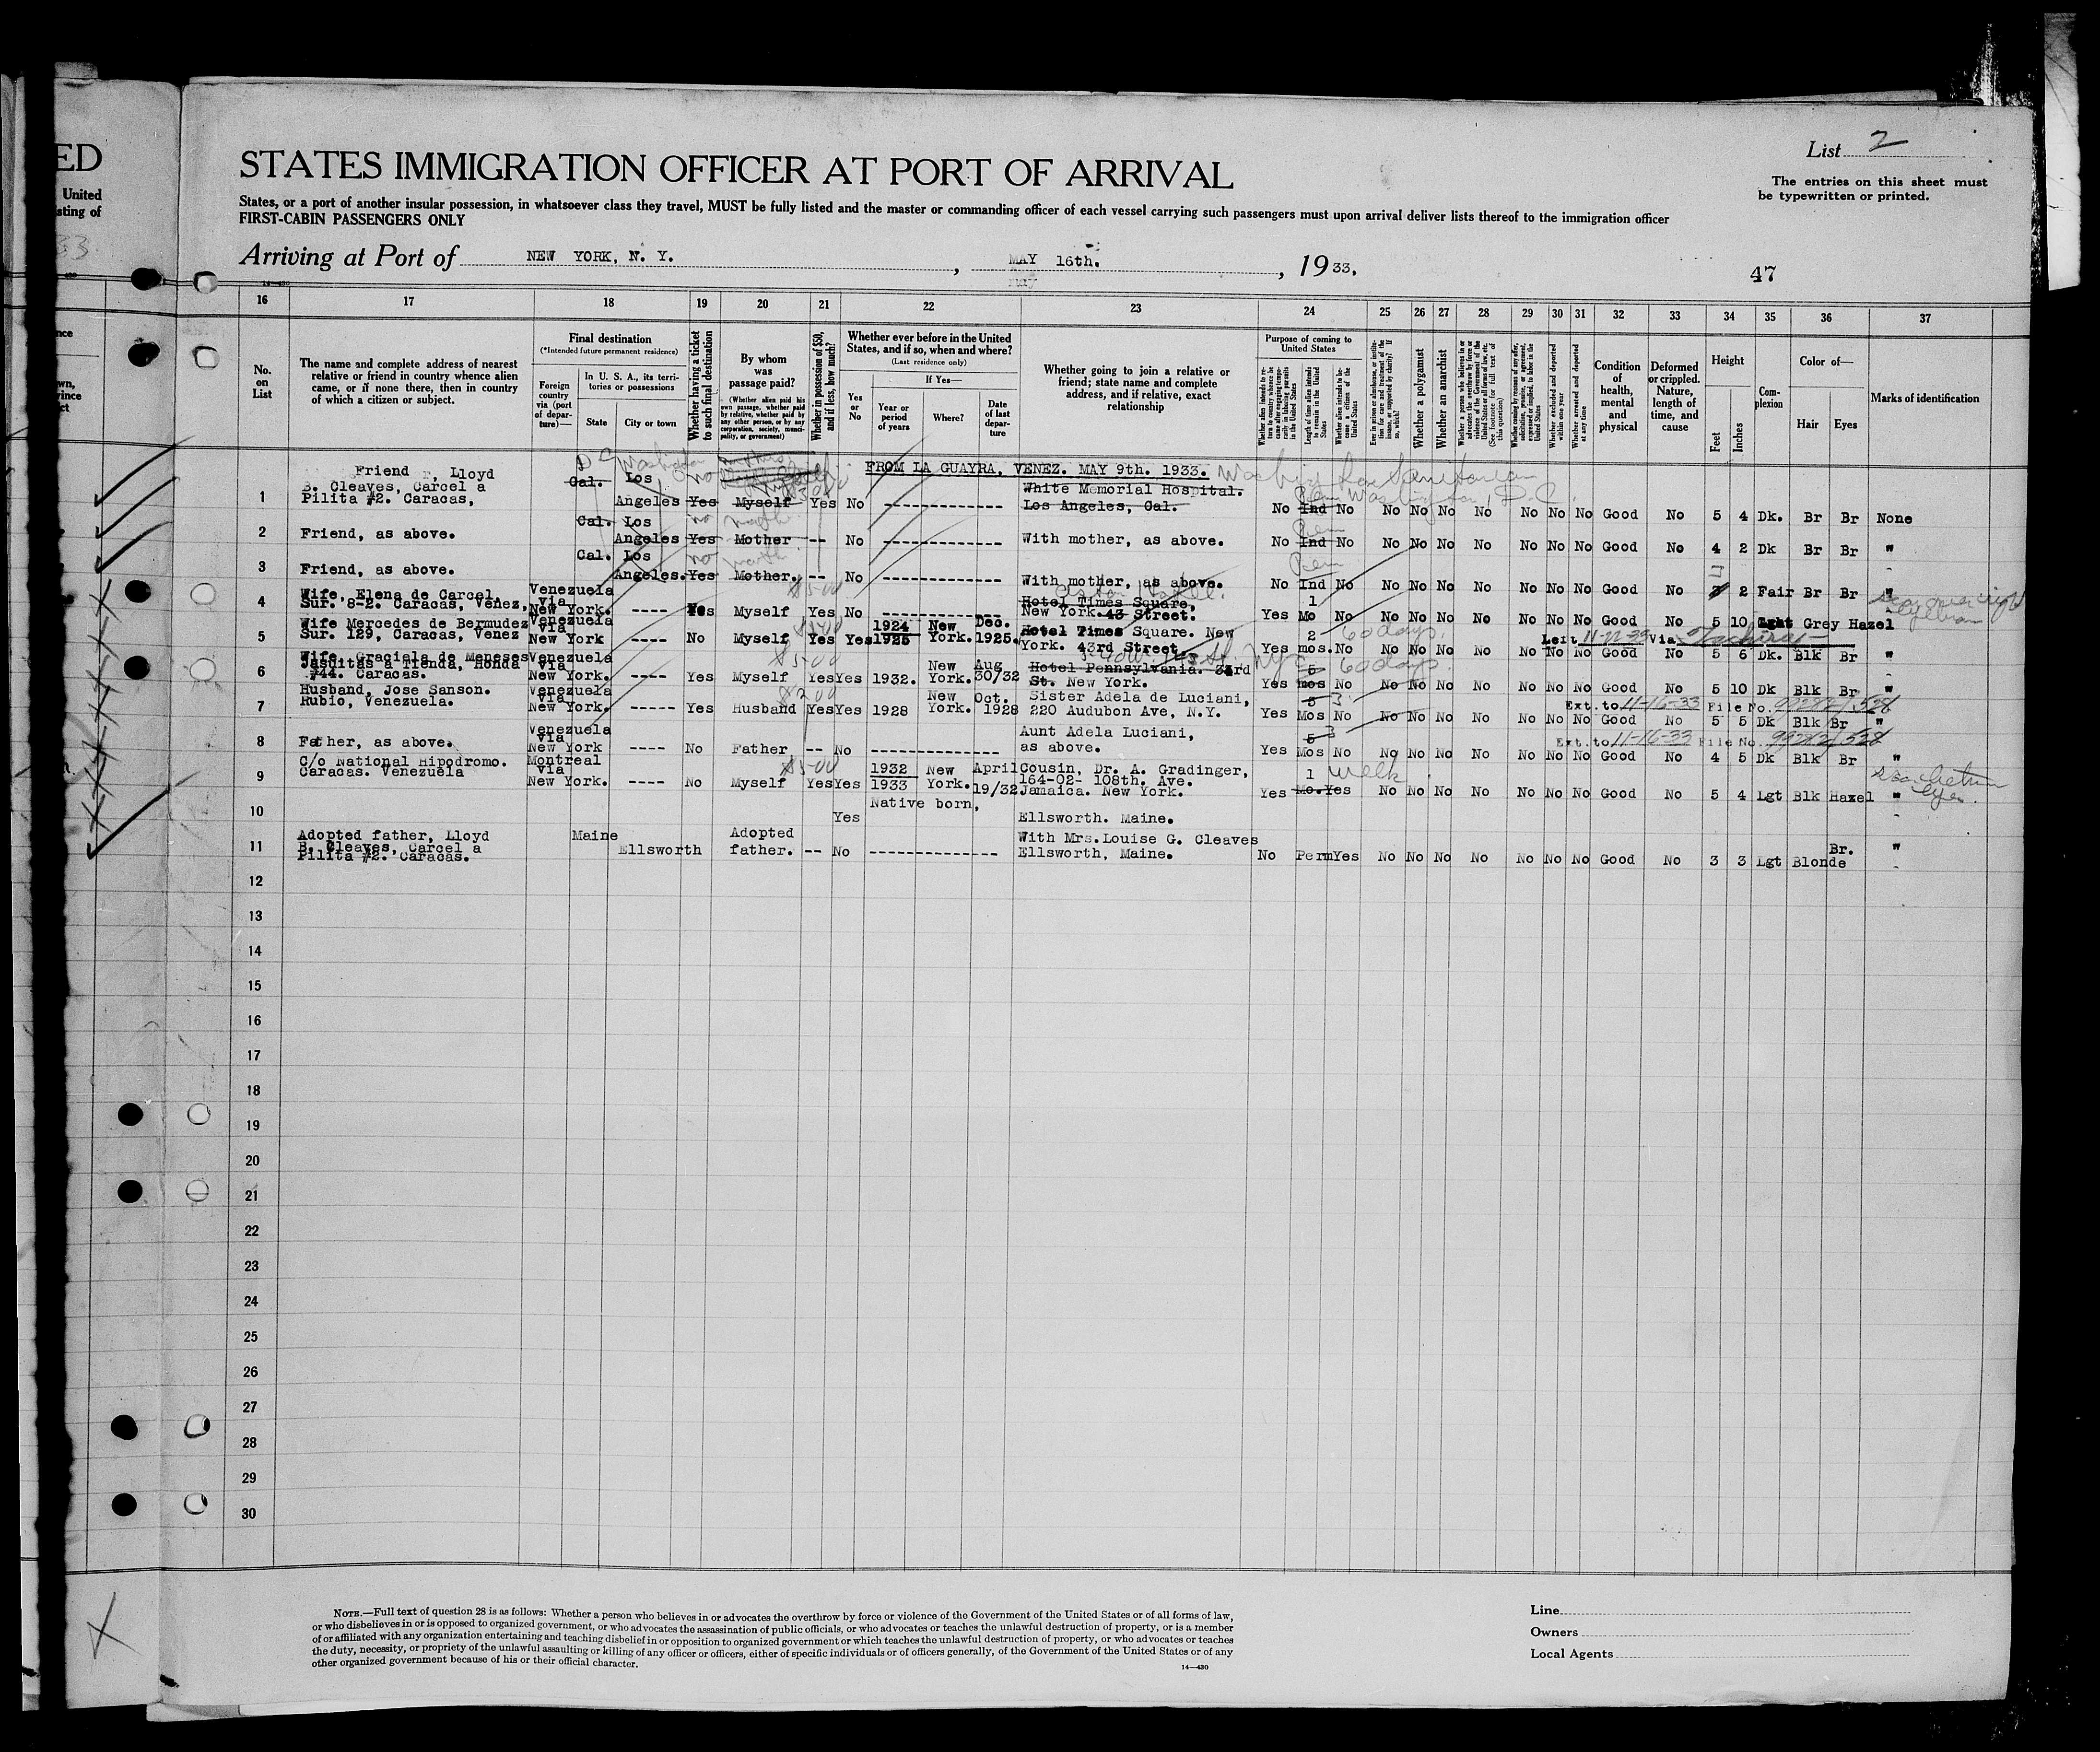 ED
United
sting of
33
List 2
STATES IMMIGRATION OFFICER AT PORT OF ARRIVAL
The entries on this sheet must
be typewritten or printed.
States, or a port of another insular possession, in whatsoever class they travel, MUST be fully listed and the master or commanding officer of each vessel carrying such passengers must upon arrival deliver lists thereof to the immigration officer
FIRST-CABIN PASSENGERS ONLY
Arriving at Port of NEW YORK, N. Y. , MAY 16th. , 1933.
47
16 17 18 19 20 21 22 23 24 25 26 27 28 29 30 31 32 33 34 35 36 37
No. on List
The name and complete address of nearest relative or friend in country whence alien came, or if none there, then in country of which a citizen or subject.
Final destination
(*Intended future permanent residence)
Foreign country via (port of departure)—
In U. S. A., its territories or possessions
State
City or town
Whether having a ticket to such final destination
By whom was passage paid?
(Whether alien paid his own passage, whether paid by relative, whether paid by any other person, or by any corporation, society, municipality, or government)
Whether in possession of $50, and if less, how much?
Whether ever before in the United States, and if so, when and where?
(Last residence only)
Yes or No
If Yes—
Year or period of years
Where?
Date of last departure
Whether going to join a relative or friend; state name and complete address, and if relative, exact relationship
Purpose of coming to United States
Length of time alien intends to remain in the United States
Whether alien intends to become a citizen of the United States
Whether a polygamist
Whether an anarchist
Whether excluded and deported within one year
Whether arrested and deported at any time
Condition of health, mental and physical
Deformed or crippled. Nature, length of time, and cause
Height
Feet
Inches
Complexion
Color of—
Hair
Eyes
Marks of identification
FROM LA GUAYRA, VENEZ. MAY 9th. 1933.
1 Friend, Lloyd B. Cleaves, Carcel a Pilita #2. Caracas, Cal. Los Angeles Yes Myself Yes No ------------- White Memorial Hospital. Los Angeles, Cal. Washington Sanitarium Washington, D.C. No Ind No No No No No No No No Good No 5 4 Dk. Br Br None
2 Friend, as above. Cal. Los Angeles Yes no Mother -- No ------------- With mother, as above. No Ind No No No No No No No No Good No 4 2 Dk Br Br "
3 Friend, as above. Cal. Los Angeles. Yes no Mother. -- No ------------- With mother, as above. No Ind No No No No No No No No Good No 3 2 Fair Br Br "
4 Wife, Elena de Carcel, Sur. 8-2. Caracas, Venez, Venezuela via New York. ---- Yes Myself $500 Yes No ------------- Hotel Times Square, New York. 43 Street. Yes 1 Mo No No No No No No No No Good No 5 10 Lght Grey Hazel
5 Wife Mercedes de Bermudez Sur. 129, Caracas, Venez Venezuela via New York ---- No Myself Yes Yes 1924 1925 New York. Dec. 1925. Hotel Times Square. New York. 43rd Street. Yes 2 mos. No 60 days. No No No No No No No Good No 5 6 Dk. Blk Br "
Left 11-22-33 Via Tachira
6 Wife, Graciela de Meneses Jesuitas a Tienda, Honda #44. Caracas. Venezuela via New York. ---- Yes Myself $500 Yes Yes 1932. New York. Aug 30/32 Hotel Pennsylvania. 33rd St. New York. Yes 5 mos No 60 days. No No No No No No No Good No 5 10 Dk Blk Br "
7 Husband, Jose Sanson. Rubio, Venezuela. Venezuela via New York. ----- Yes Husband $200 Yes Yes 1928 New York. Oct. 1928 Sister Adela de Luciani, 220 Audubon Ave, N.Y. Yes 5 3 Mos No No No No No No No No Good No 5 5 Dk Blk Br "
Ext. to 11-16-33 File No.
8 Father, as above. Venezuela via New York ---- No Father -- No --------------- Aunt Adela Luciani, as above. Yes 5 3 Mos No No No No No No No No Good No 4 5 Dk Blk Br "
Ext. to 11-16-33 File No.
9 C/o National Hipodromo. Caracas. Venezuela Montreal via New York. ---- No Myself $500 Yes Yes 1932 1933 New York. April 19/32 Cousin, Dr. A. Gradinger, 164-02- 108th. Ave. Jamaica. New York. Yes 1 Mo. week Yes No No No No No No No Good No 5 4 Lgt Blk Hazel "
10 Yes Native born, Ellsworth. Maine.
11 Adopted father, Lloyd B. Cleaves, Carcel a Pilita #2. Caracas. Maine Ellsworth Adopted father. -- No --------------- With Mrs. Louise G. Cleaves Ellsworth, Maine. No Perm Yes No No No No No No No Good No 3 3 Lgt Blonde Br. "
12
13
14
15
16
17
18
19
20
21
22
23
24
25
26
27
28
29
30
NOTE.—Full text of question 28 is as follows: Whether a person who believes in or advocates the overthrow by force or violence of the Government of the United States or of all forms of law,
or who disbelieves in or is opposed to organized government, or who advocates the assassination of public officials, or who advocates or teaches the unlawful destruction of property, or is a member
of or affiliated with any organization entertaining and teaching disbelief in or opposition to organized government or which teaches the unlawful destruction of property, or who advocates or teaches
the duty, necessity, or propriety of the unlawful assaulting or killing of any officer or officers, either of specific individuals or of officers generally, of the Government of the United States or of any
other organized government because of his or their official character.
14—430
Line
Owners
Local Agents